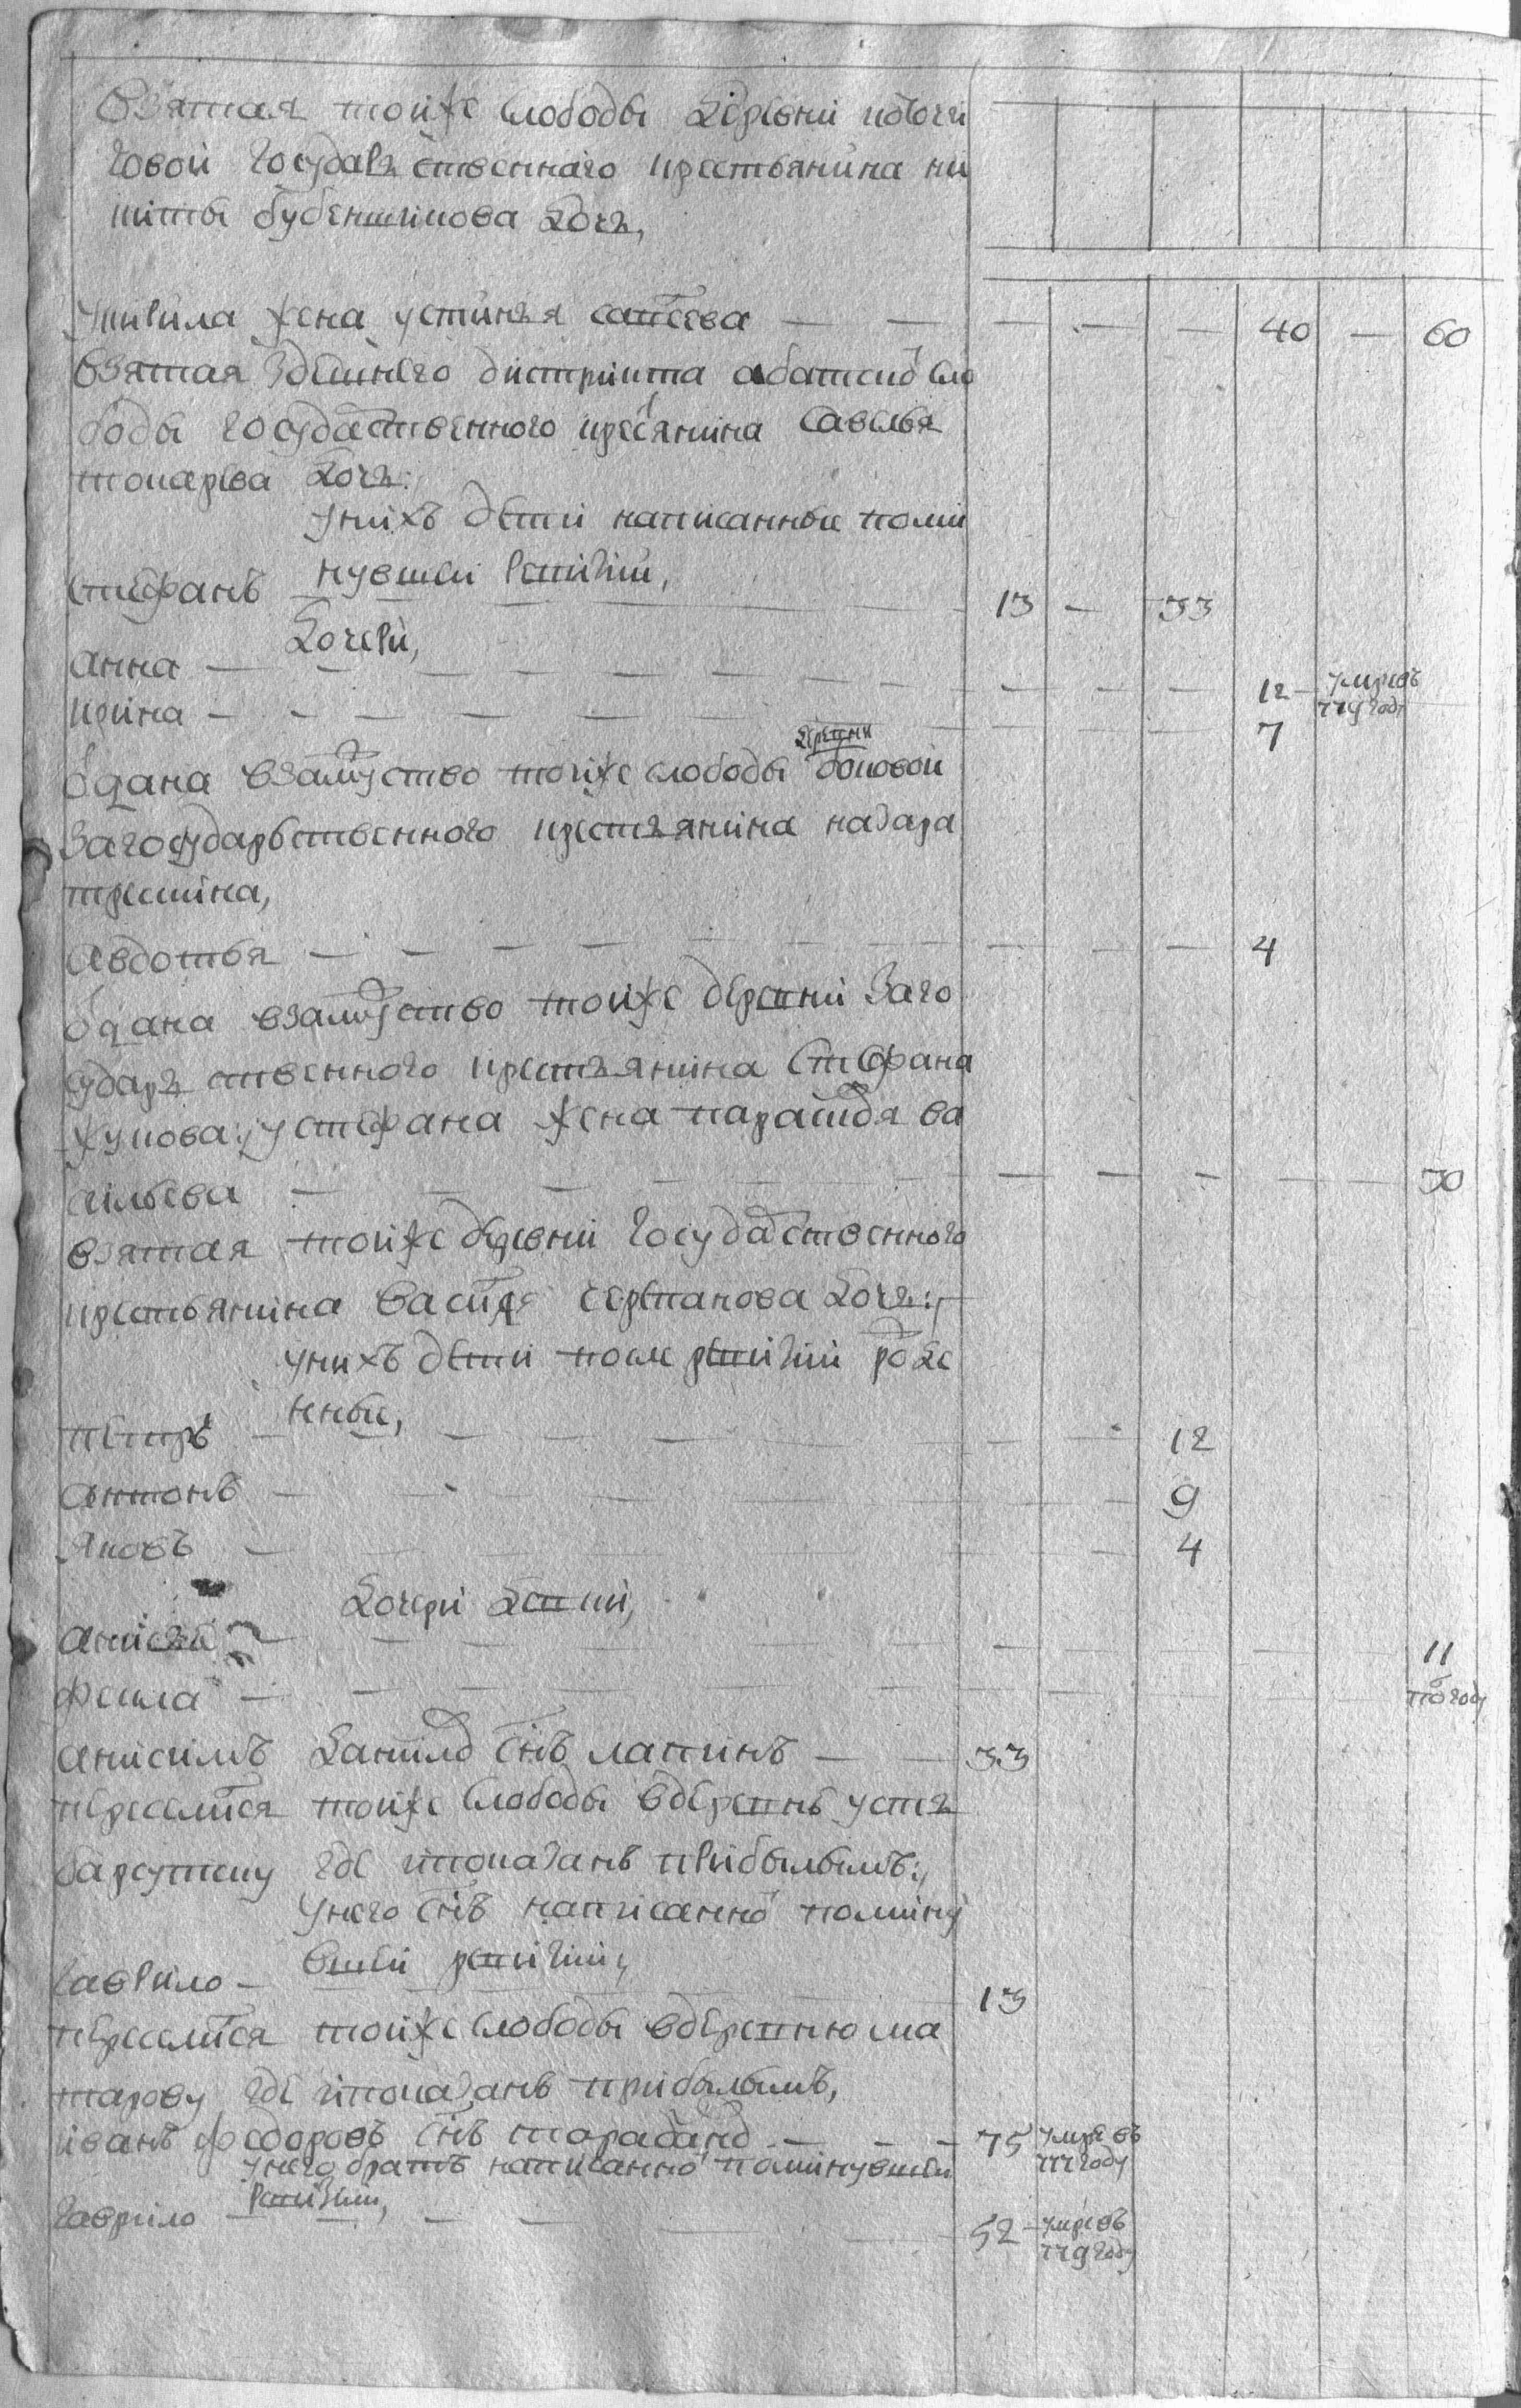 взятая тойже слободы деревни кокоча
говой государственнаго крестьянина ни
киты бубенщикова дочь,
укирила жена устинья савельева — — — — — 40 — 60
взятая здешнего дистрикта абатской сло
боды государственного крестьянина савелья
токарева дочь:
уних детей написанные поми
нувшей ревизии,
стефанъ — 13 — 33
дочери,
анна — 12 умре въ 779 году
ирина — 7
одана взамужство тойже слободы деревни боковой
загосударьственного крестьянина назара
трешина,
авдотья — 4
одана взамужство тойже деревни заго
сударственного крестьянина стефана
жукова: устефана жена парасковья ва
сильева — 30
взятая тойже деревни государственного
крестьянина василья черепанова дочь:
унихъ дети после ревизии рожде
нные,
петръ — 12
антонъ — 9
яковъ — 4
дочери девки,
анисья — 11
фекла — по году
анисимъ данилов сынъ лапинъ — — 33
переселился тойже слободы вдеревнь усть
барсутску где ипоказанъ прибылымъ:
унего сынъ написанной помину
вшей ревизии,
гаврило — 13
переселился тойже слободы вдеревню ма
тарову где ипоказанъ прибылымъ,
иванъ федоровъ сынъ тарабаевъ — — — 75 умре въ 777 году
унего братъ написанной поминувшей
ревизии,
гаврило — 52 умре въ 779 году